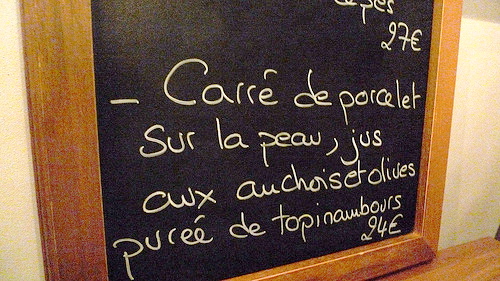 cèpes
27€
- Carré de porcelet
sur la peau, jus
aux anchois et olives
purée de topinambours
24€